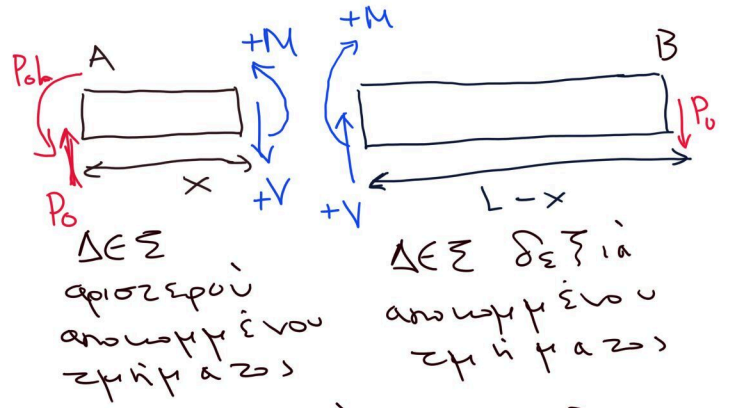 +M
+M
P₀L
A
B
P₀
x
+V
P₀
+V
L-x
ΔΕΣ
αριστερού
αποκομμένου
τμήματος
ΔΕΣ δεξιά
αποκομμένου
τμήματος